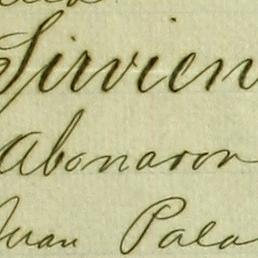 Sirvien
Abonaron
Juan Pala